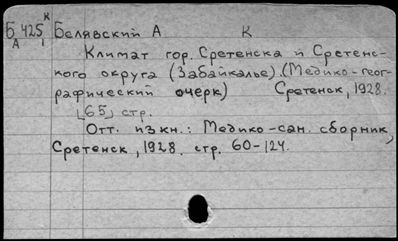 Б 425 К Белявский А К
А 1
Климат гор. Сретенска и Сретенс-
кого округа (Забайкалье).(Медико-геог-
рафический очерк) Сретенск, 1928.
[65] стр.
Отт. из кн.: Медико-сан. сборник,
Сретенск, 1928. стр. 60-124.